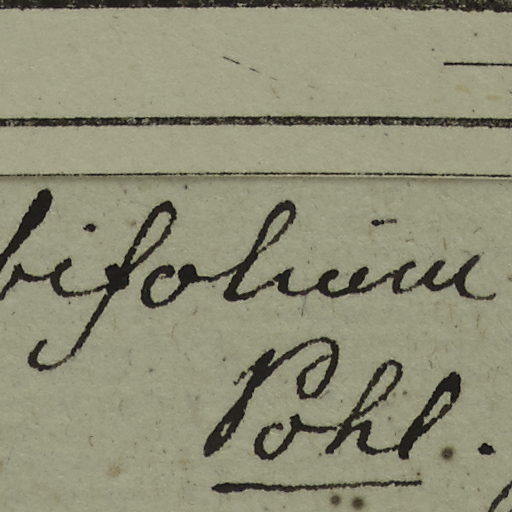 bifolium
Pohl.